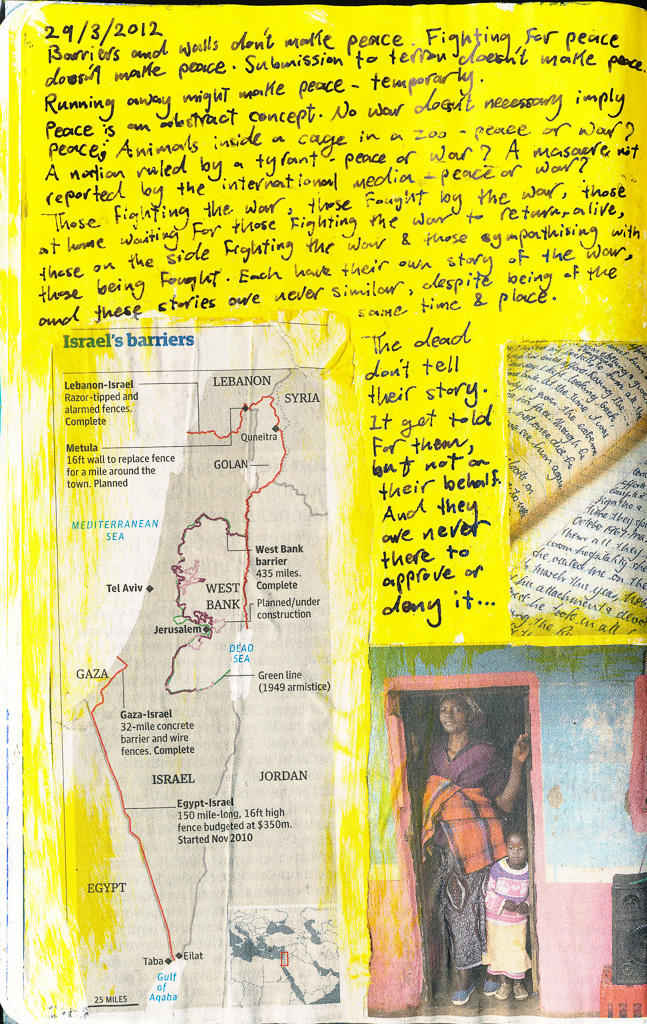 29/3/2012
Barriers and walls don't make peace. Fighting for peace
doesn't make peace. Submission to terror doesn't make peace.
Running away might make peace - temporarly.
Peace is an abstract concept. No war doesn't necessary imply
peace; Animals inside a cage in a zoo - peace or war?
A nation ruled by a tyrant - peace or war? A masacre not
reported by the international media - peace or war?
Those fighting the war, those fought by the war, those
at home waiting for those fighting the war to return, alive,
those on the side fighting the war & those sympathising with
those being fought. Each have their own story of the war,
and these stories are never similar, despite being of the
same time & place.
The dead
don't tell
their story.
It get told
for them,
but not on
their behalf.
And they
are never
there to
approve or
deny it...
Israel's barriers
Lebanon-Israel
Razor-tipped and
alarmed fences.
Complete
LEBANON
SYRIA
Metula
16ft wall to replace fence
for a mile around the
town. Planned
Quneitra
GOLAN
MEDITERRANEAN
SEA
West Bank
barrier
435 miles.
Complete
Tel Aviv
WEST
BANK
Planned/under
construction
Jerusalem
DEAD
SEA
GAZA
Green line
(1949 armistice)
Gaza-Israel
32-mile concrete
barrier and wire
fences. Complete
ISRAEL
JORDAN
Egypt-Israel
150 mile-long, 16ft high
fence budgeted at $350m.
Started Nov 2010
EGYPT
Taba
Eilat
Gulf
of
Aqaba
25 MILES